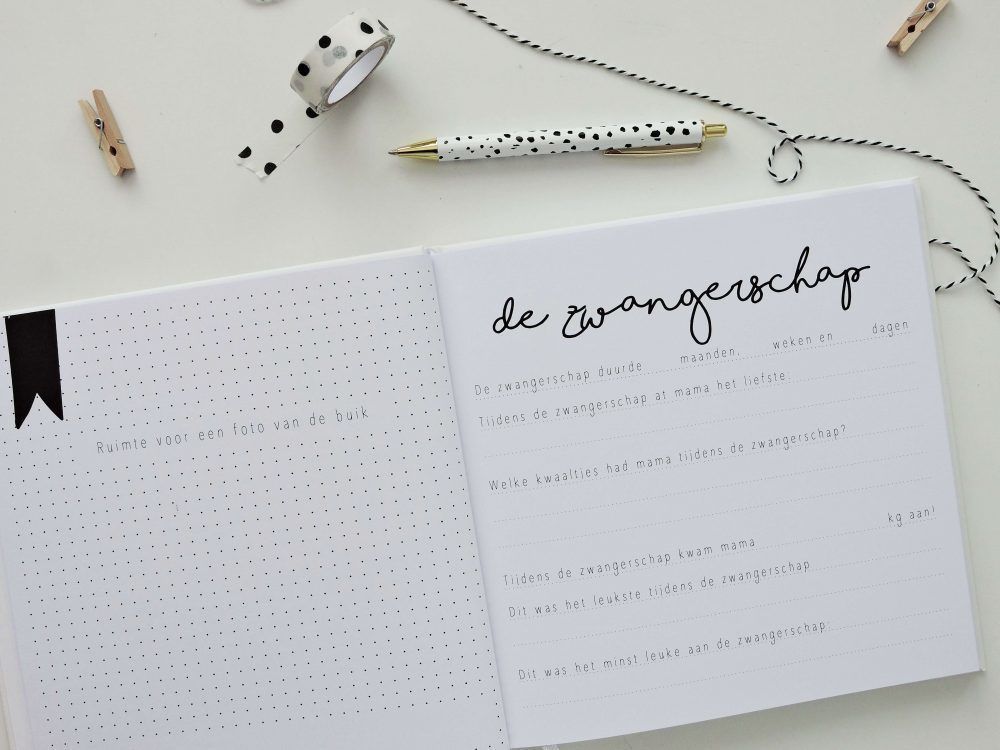 Ruimte voor een foto van de buik
de zwangerschap
De zwangerschap duurde maanden, weken en dagen
Tijdens de zwangerschap at mama het liefste:
Welke kwaaltjes had mama tijdens de zwangerschap?
Tijdens de zwangerschap kwam mama kg aan!
Dit was het leukste tijdens de zwangerschap
Dit was het minst leuke aan de zwangerschap: